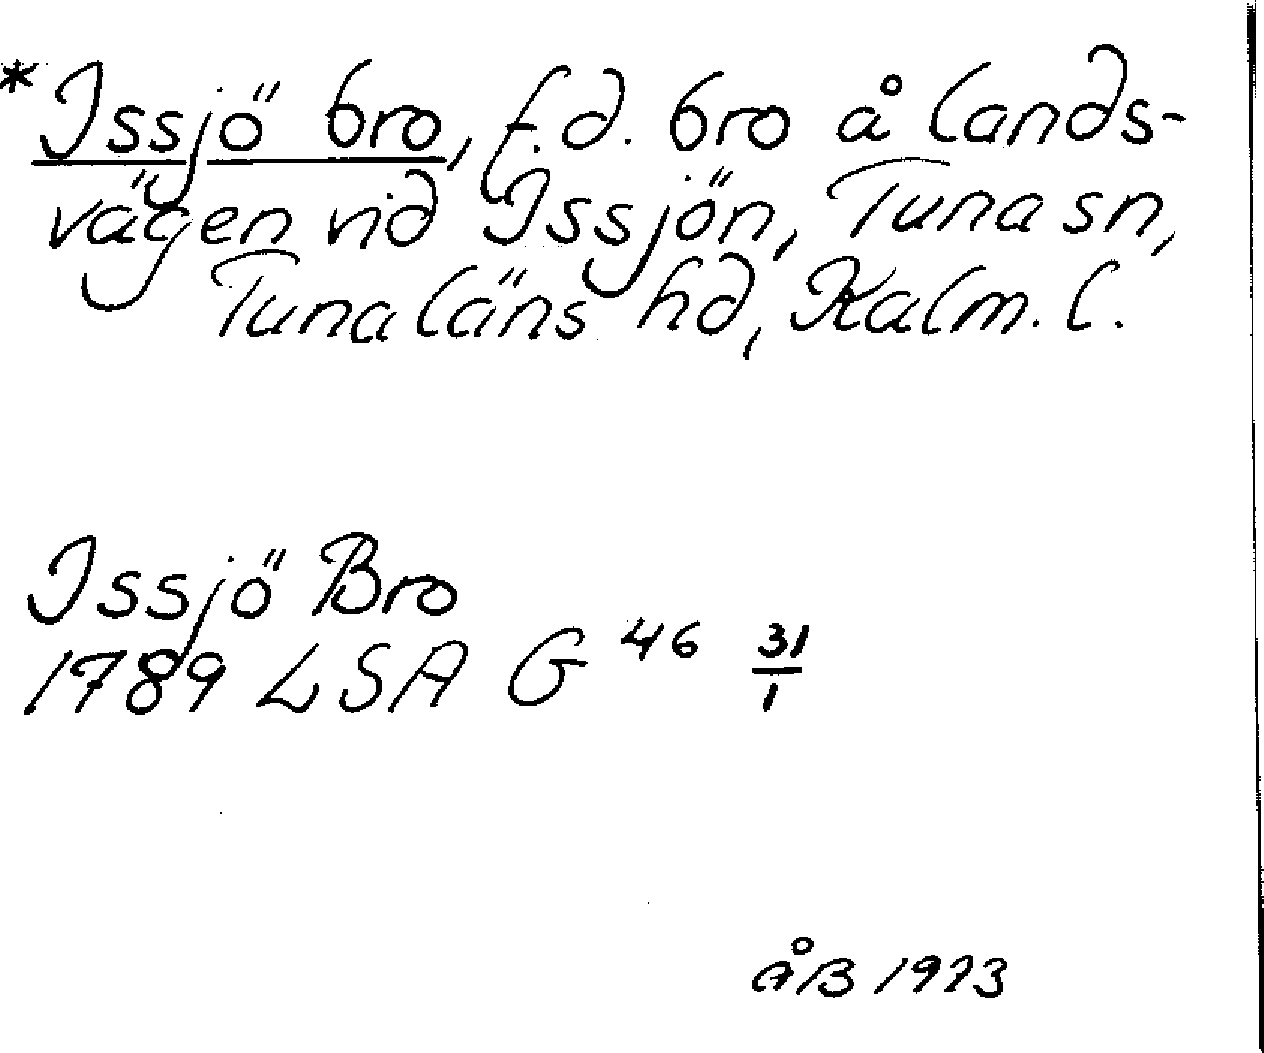 *Issjö bro, f.d. bro å lands-
vägen vid Issjön, Tuna sn,
Tunaläns hd, Kalm. l.
Issjö Bro
1789 LSA G 46 31/1
ÅB 1973